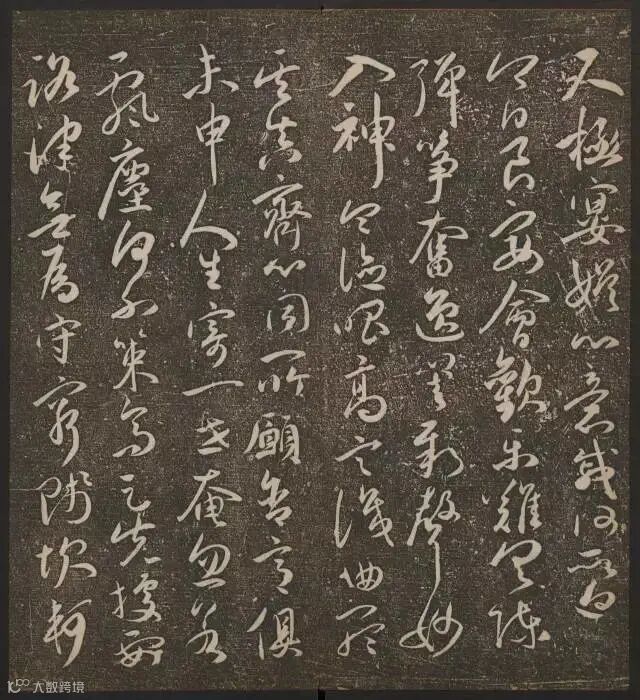 又極宴娛心意戚何所迫
今日良宴會歡樂難具陳
彈箏奮逸響新聲妙
入神令德唱高言識曲聽
其真齊心同所願含意俱
未申人生寄一世奄忽若
飆塵何不策高足先據要
路津無為守窮賤坎軻
大数跨境